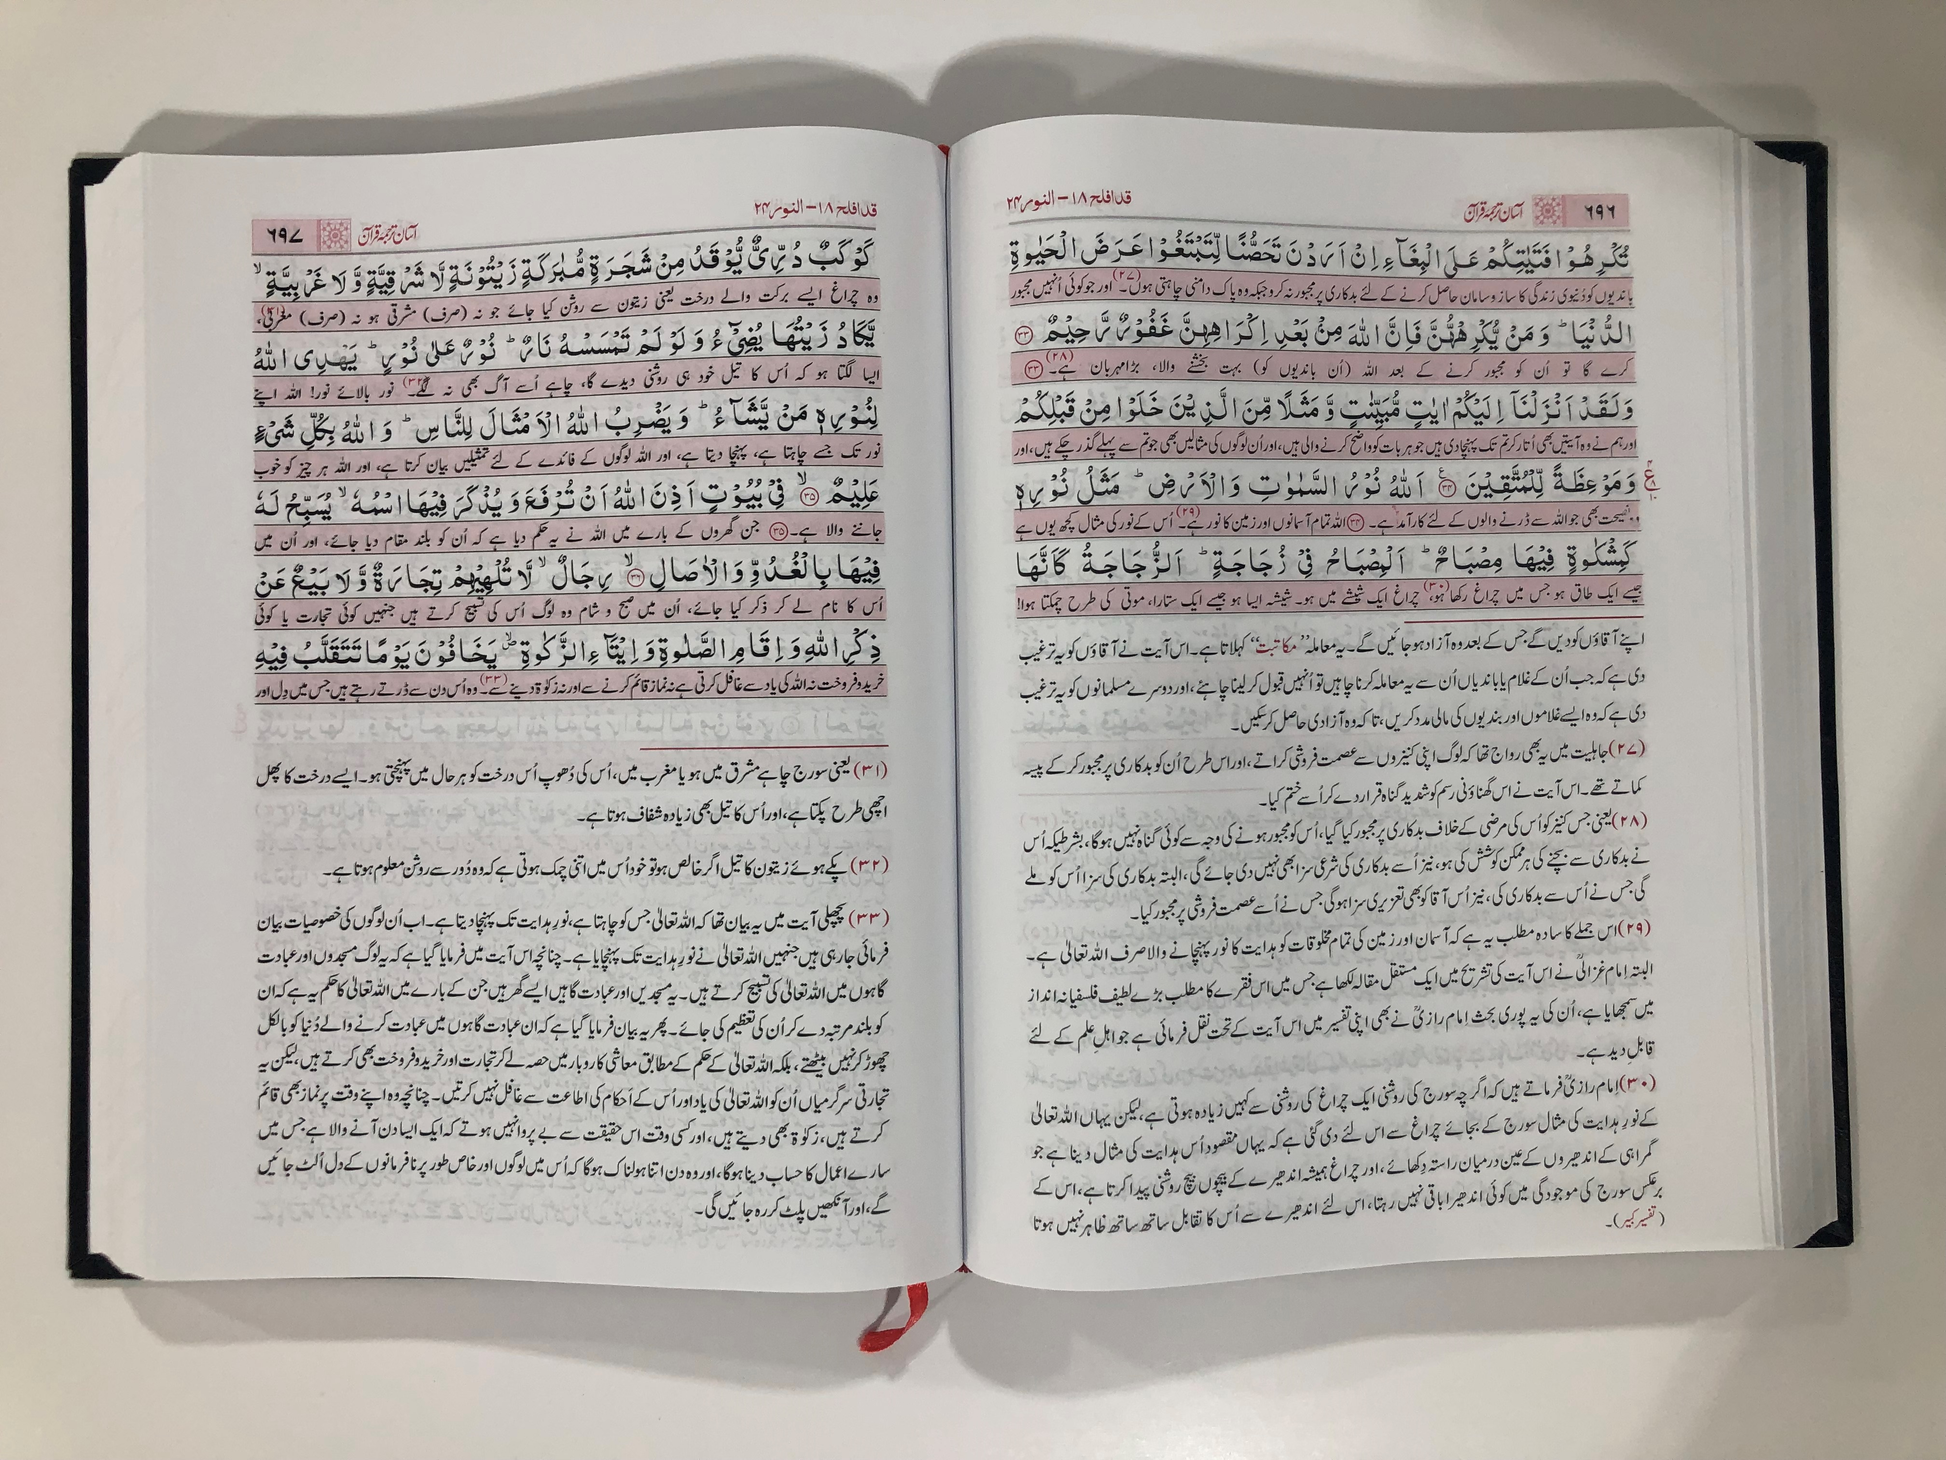 ٦٩٦ آسان ترجمۂ قرآن قدافلح ١٨ – النور ٢٤
تُكْرِهُوْا فَتَيٰتِكُمْ عَلَى الْبِغَآءِ اِنْ اَرَدْنَ تَحَصُّنًا لِّتَبْتَغُوْا عَرَضَ الْحَيٰوةِ
باندیوں کو دُنیوی زندگی کا ساز و سامان حاصل کرنے کے لئے بدکاری پر مجبور نہ کرو جبکہ وہ پاک دامنی چاہتی ہوں۔(۲۷) اور جو کوئی اُنہیں مجبور
الدُّنْيَا ؕ وَ مَنْ يُّكْرِهْهُّنَّ فَاِنَّ اللّٰهَ مِنْۢ بَعْدِ اِكْرَاهِهِنَّ غَفُوْرٌ رَّحِيْمٌ ﴿۳۳﴾
کرے گا تو اُن کو مجبور کرنے کے بعد اللہ (اُن باندیوں کو) بہت بخشنے والا، بڑا مہربان ہے۔(۲۸) ﴿۳۳﴾
وَ لَقَدْ اَنْزَلْنَآ اِلَيْكُمْ اٰيٰتٍ مُّبَيِّنٰتٍ وَّ مَثَلًا مِّنَ الَّذِيْنَ خَلَوْا مِنْ قَبْلِكُمْ
اور ہم نے وہ آیتیں بھی اُتار کر تم تک پہنچا دی ہیں جو ہر بات کو واضح کرنے والی ہیں، اور اُن لوگوں کی مثالیں بھی جو تم سے پہلے گذر چکے ہیں، اور
وَ مَوْعِظَةً لِّلْمُتَّقِيْنَ ﴿۳۴﴾ اَللّٰهُ نُوْرُ السَّمٰوٰتِ وَ الْاَرْضِ ؕ مَثَلُ نُوْرِهٖ
وہ نصیحت بھی جو اللہ سے ڈرنے والوں کے لئے کارآمد ہے۔ ﴿۳۴﴾ اللہ تمام آسمانوں اور زمین کا نور ہے۔(۲۹) اُس کے نور کی مثال کچھ یوں ہے
كَمِشْكٰوةٍ فِيْهَا مِصْبَاحٌ ؕ اَلْمِصْبَاحُ فِيْ زُجَاجَةٍ ؕ اَلزُّجَاجَةُ كَاَنَّهَا
جیسے ایک طاق ہو جس میں چراغ رکھا ہو،(۳۰) چراغ ایک شیشے میں ہو۔ شیشہ ایسا ہو جیسے ایک ستارا، موتی کی طرح چمکتا ہوا!
اپنے آقاؤں کو دیں گے جس کے بعد وہ آزاد ہو جائیں گے۔ یہ معاملہ ”مکاتبت“ کہلاتا ہے۔ اس آیت نے آقاؤں کو یہ ترغیب
دی ہے کہ جب اُن کے غلام یا باندیاں اُن سے یہ معاملہ کرنا چاہیں تو اُنہیں قبول کرلینا چاہئے، اور دوسرے مسلمانوں کو یہ ترغیب
دی ہے کہ وہ ایسے غلاموں اور بندیوں کی مالی مدد کریں، تاکہ وہ آزادی حاصل کرسکیں۔
(۲۷) جاہلیت میں یہ بھی رواج تھا کہ لوگ اپنی کنیزوں سے عصمت فروشی کراتے، اور اس طرح اُن کو بدکاری پر مجبور کر کے پیسہ
کماتے تھے۔ اس آیت نے اس گھناؤنی رسم کو شدید گناہ قرار دے کر اُسے ختم کیا۔
(۲۸) یعنی جس کنیز کو اُس کی مرضی کے خلاف بدکاری پر مجبور کیا گیا، اُس کو مجبور ہونے کی وجہ سے کوئی گناہ نہیں ہوگا، بشرطیکہ اُس
نے بدکاری سے بچنے کی ہر ممکن کوشش کی ہو، نیز اُسے بدکاری کی شرعی سزا بھی نہیں دی جائے گی، البتہ بدکاری کی سزا اُس کو ملے
گی جس نے اُس سے بدکاری کی، نیز اُس آقا کو بھی تعزیری سزا ہوگی جس نے اُسے عصمت فروشی پر مجبور کیا۔
(۲۹) اس جملے کا سادہ مطلب یہ ہے کہ آسمان اور زمین کی تمام مخلوقات کو ہدایت کا نور پہنچانے والا صرف اللہ تعالیٰ ہے۔
البتہ امام غزالیؒ نے اس آیت کی تشریح میں ایک مستقل مقالہ لکھا ہے جس میں اس فقرے کا مطلب بڑے لطیف فلسفیانہ انداز
میں سمجھایا ہے، اُن کی یہ پوری بحث امام رازیؒ نے بھی اپنی تفسیر میں اس آیت کے تحت نقل فرمائی ہے جو اہلِ علم کے لئے
قابلِ دید ہے۔
(۳۰) اِمام رازیؒ فرماتے ہیں کہ اگرچہ سورج کی روشنی ایک چراغ کی روشنی سے کہیں زیادہ ہوتی ہے، لیکن یہاں اللہ تعالیٰ
کے نورِ ہدایت کی مثال سورج کے بجائے چراغ سے اس لئے دی گئی ہے کہ یہاں مقصود اُس ہدایت کی مثال دینا ہے جو
گمراہی کے اندھیروں کے عین درمیان راستہ دکھائے، اور چراغ ہمیشہ اندھیرے کے بیچوں بیچ روشنی پیدا کرتا ہے، اس کے
برعکس سورج کی موجودگی میں کوئی اندھیرا باقی نہیں رہتا، اس لئے اندھیرے سے اُس کا تقابل ساتھ ساتھ ظاہر نہیں ہوتا
(تفسیر کبیر)۔
قدافلح ١٨ – النور ٢٤ آسان ترجمۂ قرآن ٦٩٧
كَوْكَبٌ دُرِّيٌّ يُّوْقَدُ مِنْ شَجَرَةٍ مُّبٰرَكَةٍ زَيْتُوْنَةٍ لَّا شَرْقِيَّةٍ وَّ لَا غَرْبِيَّةٍ ۙ
وہ چراغ ایسے برکت والے درخت یعنی زیتون سے روشن کیا جائے جو نہ (صرف) مشرقی ہو نہ (صرف) مغربی،(۳۱)
يَّكَادُ زَيْتُهَا يُضِيْٓءُ وَ لَوْ لَمْ تَمْسَسْهُ نَارٌ ؕ نُوْرٌ عَلٰى نُوْرٍ ؕ يَهْدِى اللّٰهُ
ایسا لگتا ہو کہ اُس کا تیل خود ہی روشنی دیدے گا، چاہے اُسے آگ بھی نہ لگے۔(۳۲) نور بالائے نور! اللہ اپنے
لِنُوْرِهٖ مَنْ يَّشَآءُ ؕ وَ يَضْرِبُ اللّٰهُ الْاَمْثَالَ لِلنَّاسِ ؕ وَ اللّٰهُ بِكُلِّ شَيْءٍ
نور تک جسے چاہتا ہے، پہنچا دیتا ہے، اور اللہ لوگوں کے فائدے کے لئے تمثیلیں بیان کرتا ہے، اور اللہ ہر چیز کو خوب
عَلِيْمٌ ۙ﴿۳۵﴾ فِيْ بُيُوْتٍ اَذِنَ اللّٰهُ اَنْ تُرْفَعَ وَ يُذْكَرَ فِيْهَا اسْمُهٗ ۙ يُسَبِّحُ لَهٗ
جاننے والا ہے۔﴿۳۵﴾ جن گھروں کے بارے میں اللہ نے یہ حکم دیا ہے کہ اُن کو بلند مقام دیا جائے، اور اُن میں
فِيْهَا بِالْغُدُوِّ وَ الْاٰصَالِ ۙ﴿۳۶﴾ رِجَالٌ ۙ لَّا تُلْهِيْهِمْ تِجَارَةٌ وَّ لَا بَيْعٌ عَنْ
اُس کا نام لے کر ذکر کیا جائے، اُن میں صبح و شام وہ لوگ اُس کی تسبیح کرتے ہیں جنہیں کوئی تجارت یا کوئی
ذِكْرِ اللّٰهِ وَ اِقَامِ الصَّلٰوةِ وَ اِيْتَآءِ الزَّكٰوةِ ۪ۙ يَخَافُوْنَ يَوْمًا تَتَقَلَّبُ فِيْهِ
خرید و فروخت نہ اللہ کی یاد سے غافل کرتی ہے نہ نماز قائم کرنے سے اور نہ زکوٰۃ دینے سے۔(۳۳) وہ اُس دن سے ڈرتے رہتے ہیں جس میں دِل اور
(۳۱) یعنی سورج چاہے مشرق میں ہو یا مغرب میں، اُس کی دُھوپ اُس درخت کو ہر حال میں پہنچتی ہو۔ ایسے درخت کا پھل
اچھی طرح پکتا ہے، اور اُس کا تیل بھی زیادہ شفاف ہوتا ہے۔
(۳۲) پکے ہوئے زیتون کا تیل اگر خالص ہو تو خود اُس میں اتنی چمک ہوتی ہے کہ وہ دُور سے روشن معلوم ہوتا ہے۔
(۳۳) پچھلی آیت میں یہ بیان تھا کہ اللہ تعالیٰ جس کو چاہتا ہے، نورِ ہدایت تک پہنچا دیتا ہے۔ اب اُن لوگوں کی خصوصیات بیان
فرمائی جارہی ہیں جنہیں اللہ تعالیٰ نے نورِ ہدایت تک پہنچایا ہے۔ چنانچہ اس آیت میں فرمایا گیا ہے کہ یہ لوگ مسجدوں اور عبادت
گاہوں میں اللہ تعالیٰ کی تسبیح کرتے ہیں۔ یہ مسجدیں اور عبادت گاہیں ایسے گھر ہیں جن کے بارے میں اللہ تعالیٰ کا حکم یہ ہے کہ ان
کو بلند مرتبہ دے کر اُن کی تعظیم کی جائے۔ پھر یہ بیان فرمایا گیا ہے کہ ان عبادت گاہوں میں عبادت کرنے والے دُنیا کو بالکل
چھوڑ کر نہیں بیٹھتے، بلکہ اللہ تعالیٰ کے حکم کے مطابق معاشی کاروبار میں حصہ لے کر تجارت اور خرید و فروخت بھی کرتے ہیں، لیکن یہ
تجارتی سرگرمیاں اُن کو اللہ تعالیٰ کی یاد اور اُس کے اَحکام کی اطاعت سے غافل نہیں کرتیں۔ چنانچہ وہ اپنے وقت پر نماز بھی قائم
کرتے ہیں، زکوٰۃ بھی دیتے ہیں، اور کسی وقت اس حقیقت سے بے پروا نہیں ہوتے کہ ایک ایسا دن آنے والا ہے جس میں
سارے اعمال کا حساب دینا ہوگا، اور وہ دن اتنا ہولناک ہوگا کہ اُس میں لوگوں اور خاص طور پر نافرمانوں کے دِل اُلٹ جائیں
گے، اور آنکھیں پلٹ کر رہ جائیں گی۔